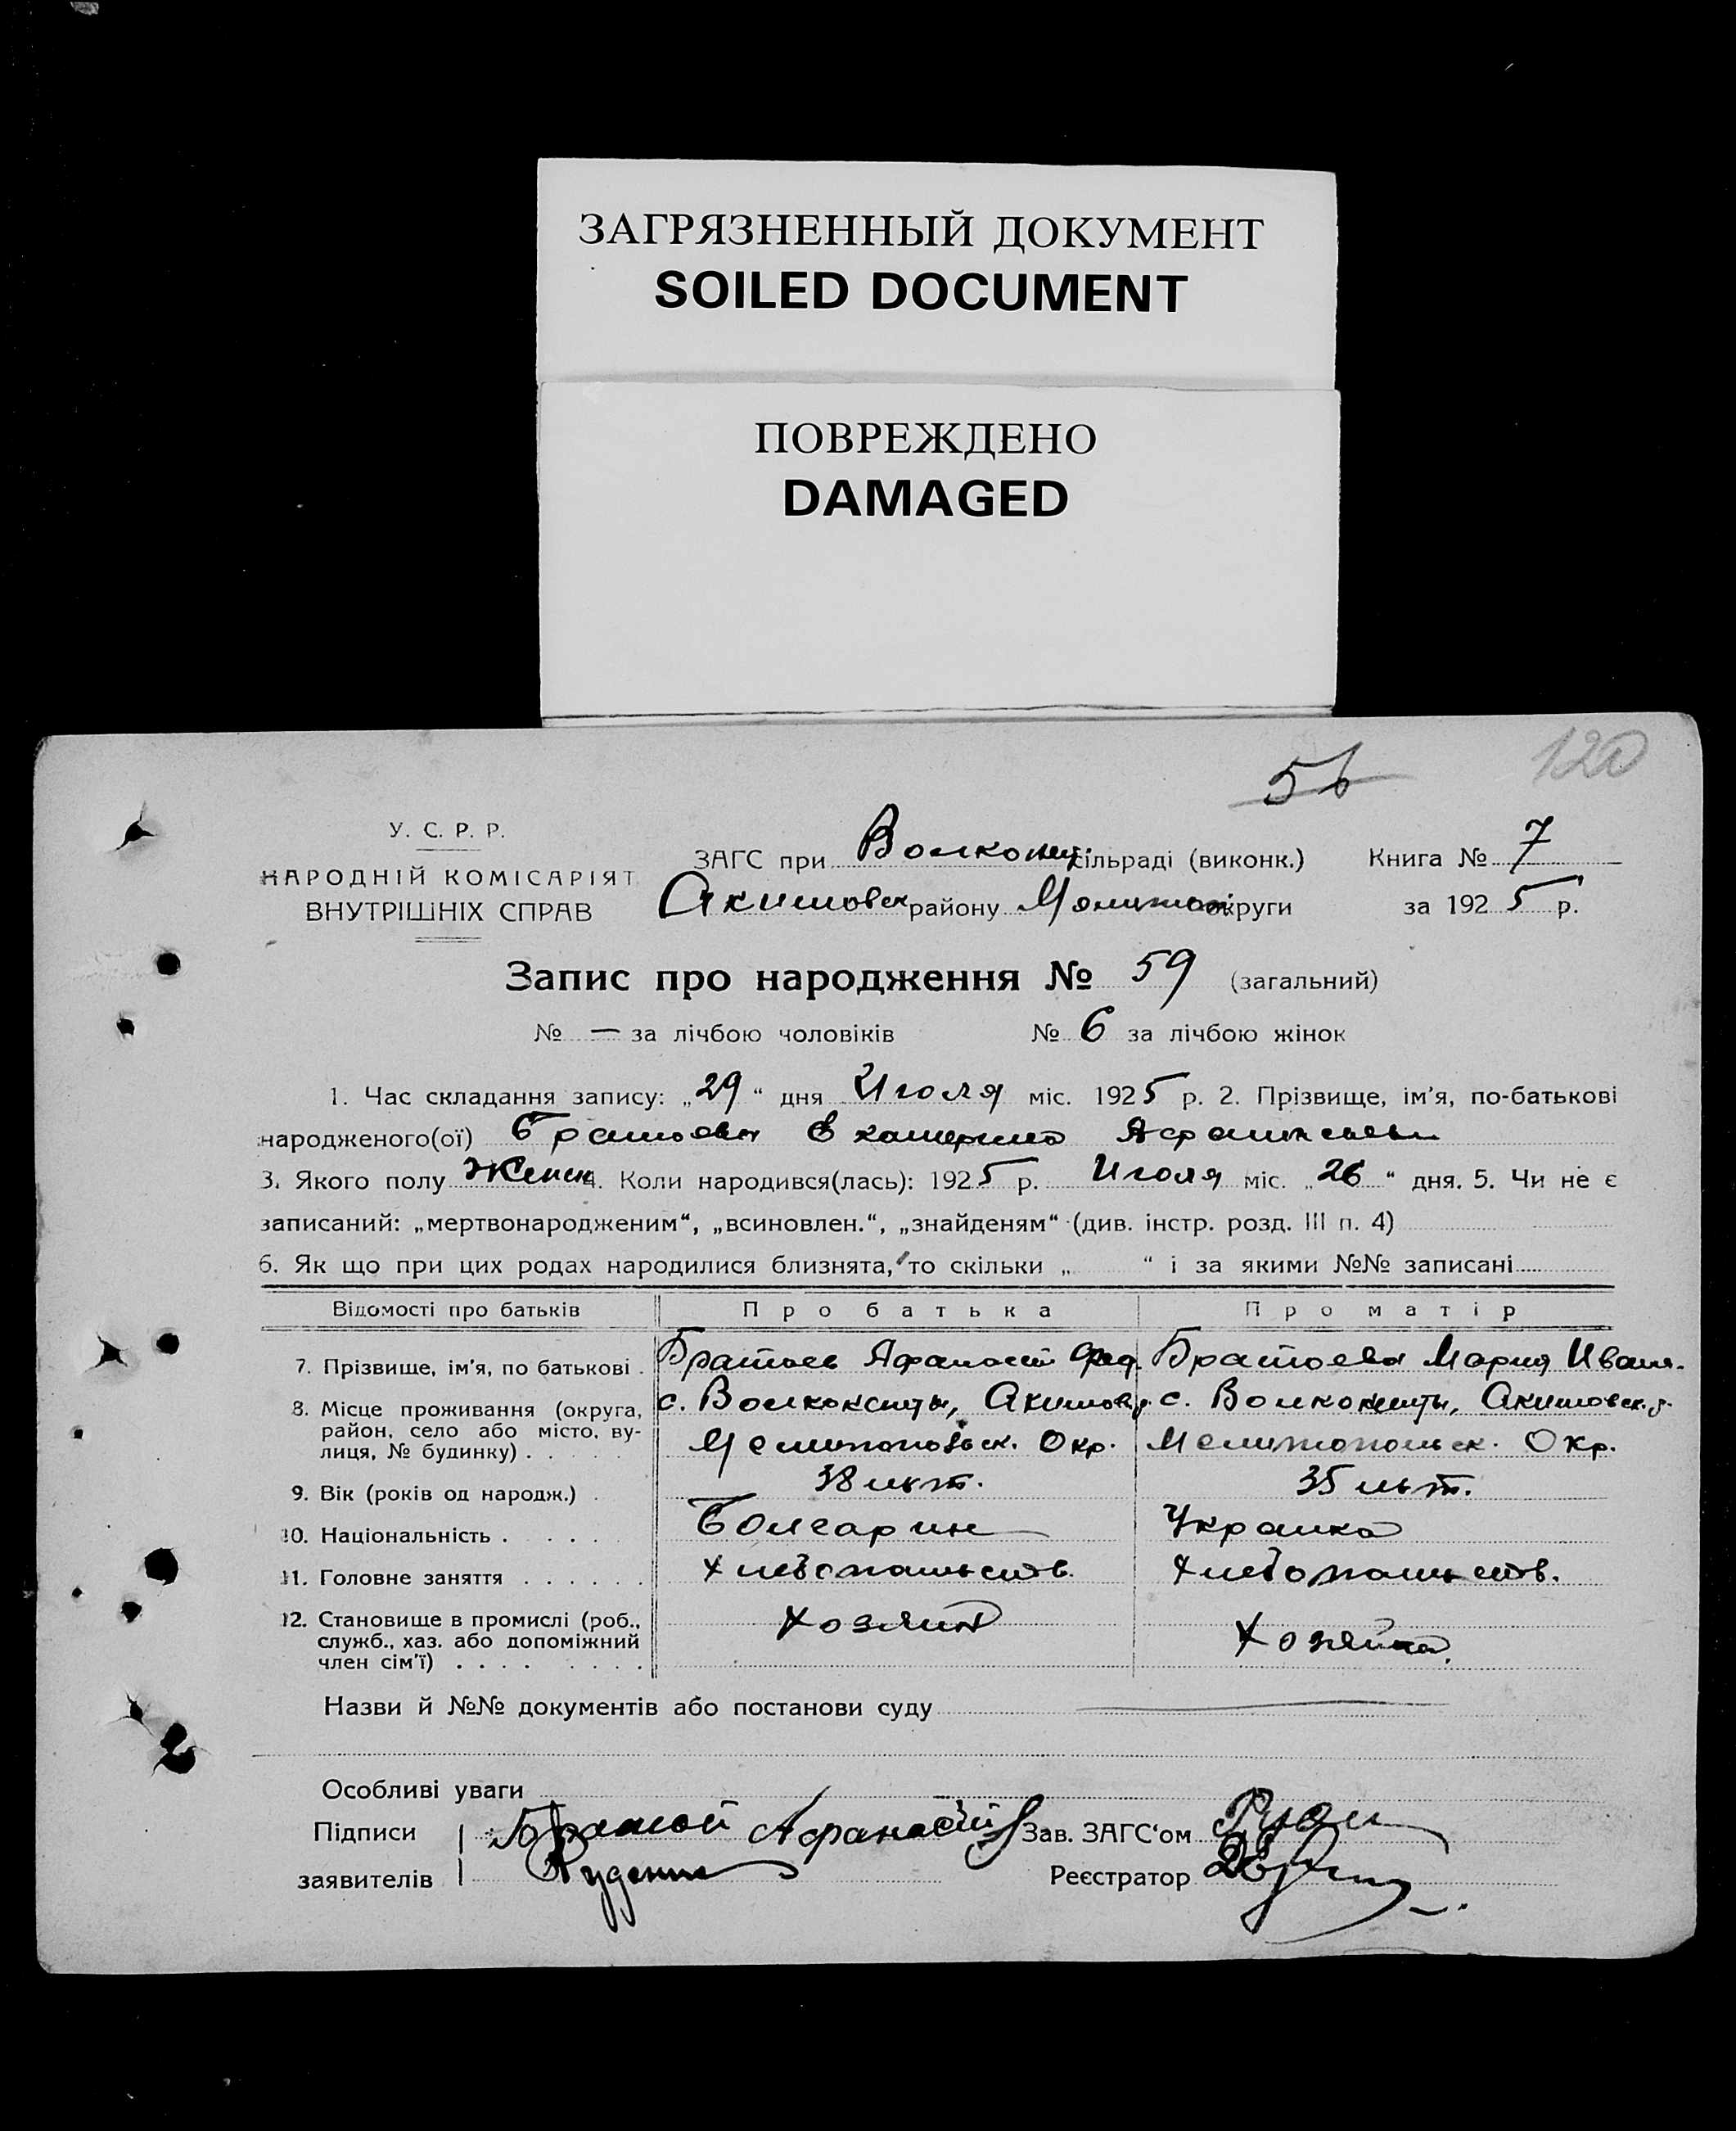 ЗАГРЯЗНЕННЫЙ ДОКУМЕНТ
SOILED DOCUMENT
ПОВРЕЖДЕНО
DAMAGED
56
120
У. С. Р. Р.
НАРОДНІЙ КОМІСАРІЯТ
ВНУТРІШНІХ СПРАВ
ЗАГС при сільраді (виконк.) Книга № 7
Акимовск району округи за 1925 р.
Запис про народження № 59 (загальний)
№ — за лічбою чоловіків № 6 за лічбою жінок
1. Час складання запису: „29“ дня Июля міс. 1925 р. 2. Прізвище, ім'я, по-батькові
народженого(ої) Братоева Екатерина
3. Якого полу Женск 4. Коли народився(лась): 1925 р. Июля міс. „26“ дня. 5. Чи не є
записаний: „мертвонародженим“, „всиновлен.“, „знайденям“ (див. інстр. розд. III п. 4)
6. Як що при цих родах народилися близнята, то скільки „ “ і за якими №№ записані
Відомості про батьків Про батька Про матір
7. Прізвище, ім'я, по батькові . Братоев Афанасий Фед. Братоева Мария Иван.
8. Місце проживання (округа, район, село або місто, вулиця, № будинку) . . . . . с. Волконешты, Акимовск. р. с. Волконешты, Акимовск. р.
Мелитопольск. Окр. Мелитопольск. Окр.
9. Вік (років од народж.) . 38 лет. 35 лет.
10. Національність . . . . . Болгарин Украинка
11. Головне заняття . . . . . . Хлебопашеств. Хлебопашеств.
12. Становище в промислі (роб., служб., хаз. або допоміжний член сім'ї) . . . . . . . . Хозяин Хозяйка.
Назви й №№ документів або постанови суду
Особливі уваги
Підписи Братой Афанасий Зав. ЗАГС'ом
заявителів Реєстратор